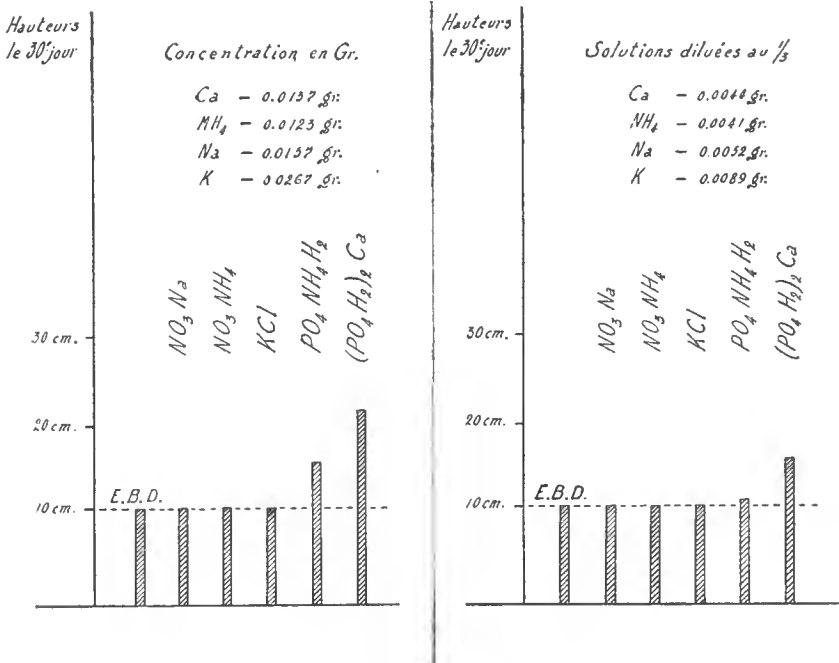 Hauteurs
le 30e jour
Concentration en Gr.
Ca - 0.0137 gr.
NH4 - 0.0123 gr.
Na - 0.0157 gr.
K - 0.0267 gr.
NO3 Na
NO3 NH4
KCl
PO4 NH4 H2
(PO4 H2)2 Ca
30 cm.
20 cm.
10 cm.
E.B.D.
Hauteurs
le 30e jour
Solutions diluées au 1/3
Ca - 0.0046 gr.
NH4 - 0.0041 gr.
Na - 0.0052 gr.
K - 0.0089 gr.
NO3 Na
NO3 NH4
KCl
PO4 NH4 H2
(PO4 H2)2 Ca
30 cm.
20 cm.
10 cm.
E.B.D.